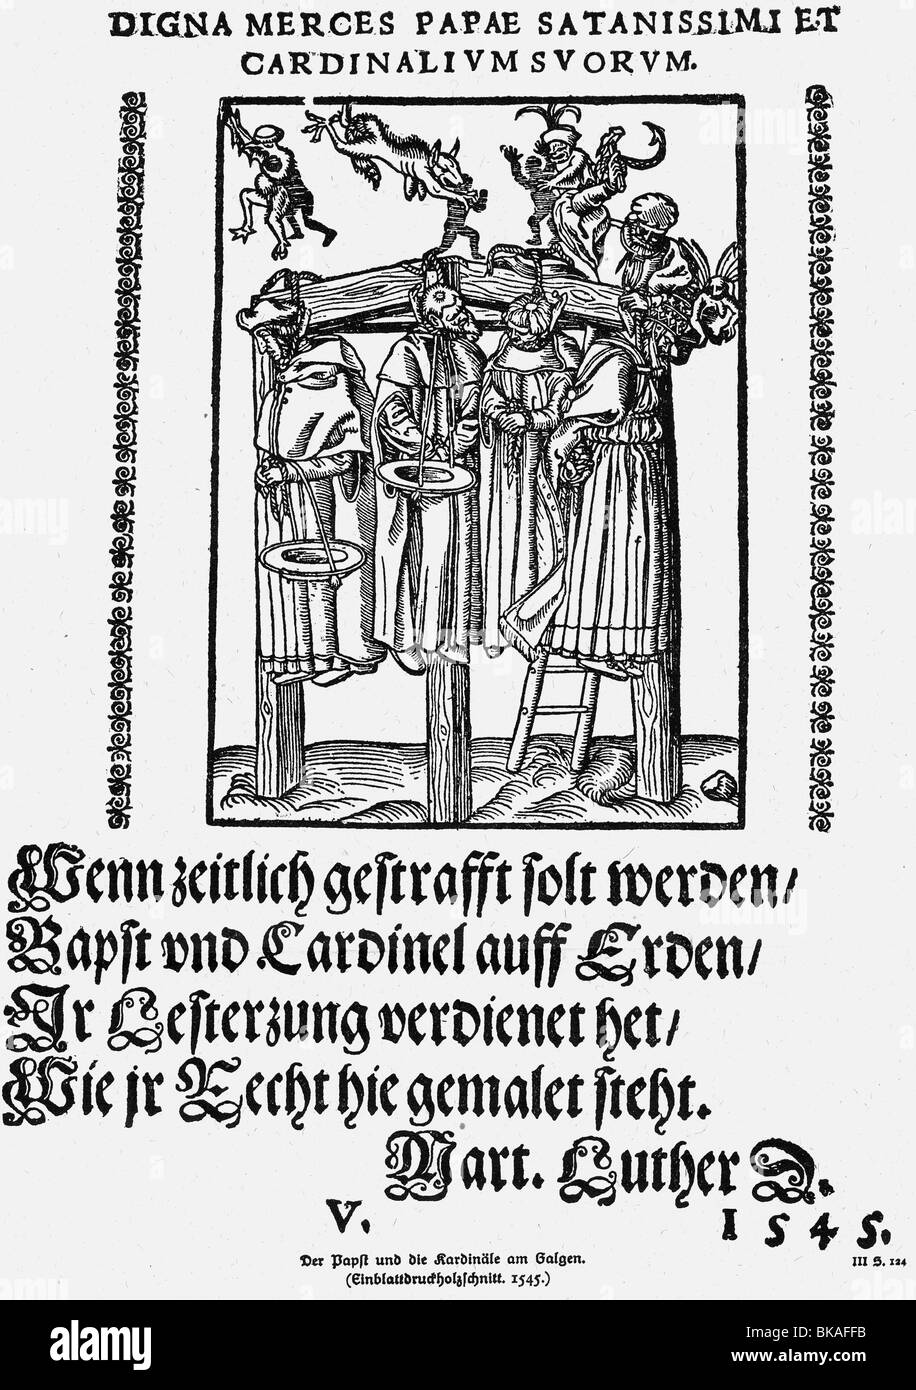 DIGNA MERCES PAPAE SATANISSIMI ET
CARDINALIVM SVORVM.
Wenn zeitlich gestrafft solt werden/
Bapst vnd Cardinel auff Erden/
Ir Lesterzung verdienet het/
Wie jr Recht hie gemalet steht.
Mart. Luther D.
V.
1545.
Der Papst und die Kardinäle am Galgen.
(Einblattdruckholzschnitt. 1545.)
III S. 124
alamy
Image ID: BKAFFB
www.alamy.com